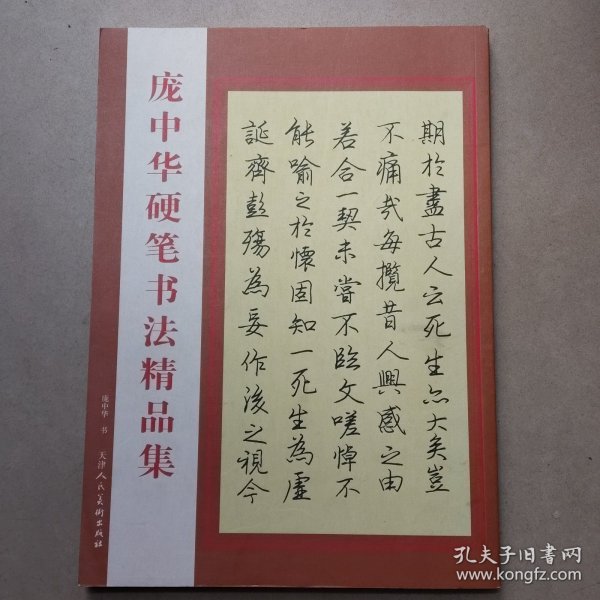 庞中华硬笔书法精品集
庞中华 书
天津人民美術出版社
期於盡古人云死生亦大矣豈
不痛哉每攬昔人興感之由
若合一契未嘗不臨文嗟悼不
能喻之於懷固知一死生為虛
誕齊彭殤為妄作後之視今
孔夫子旧书网
www.kongfz.com